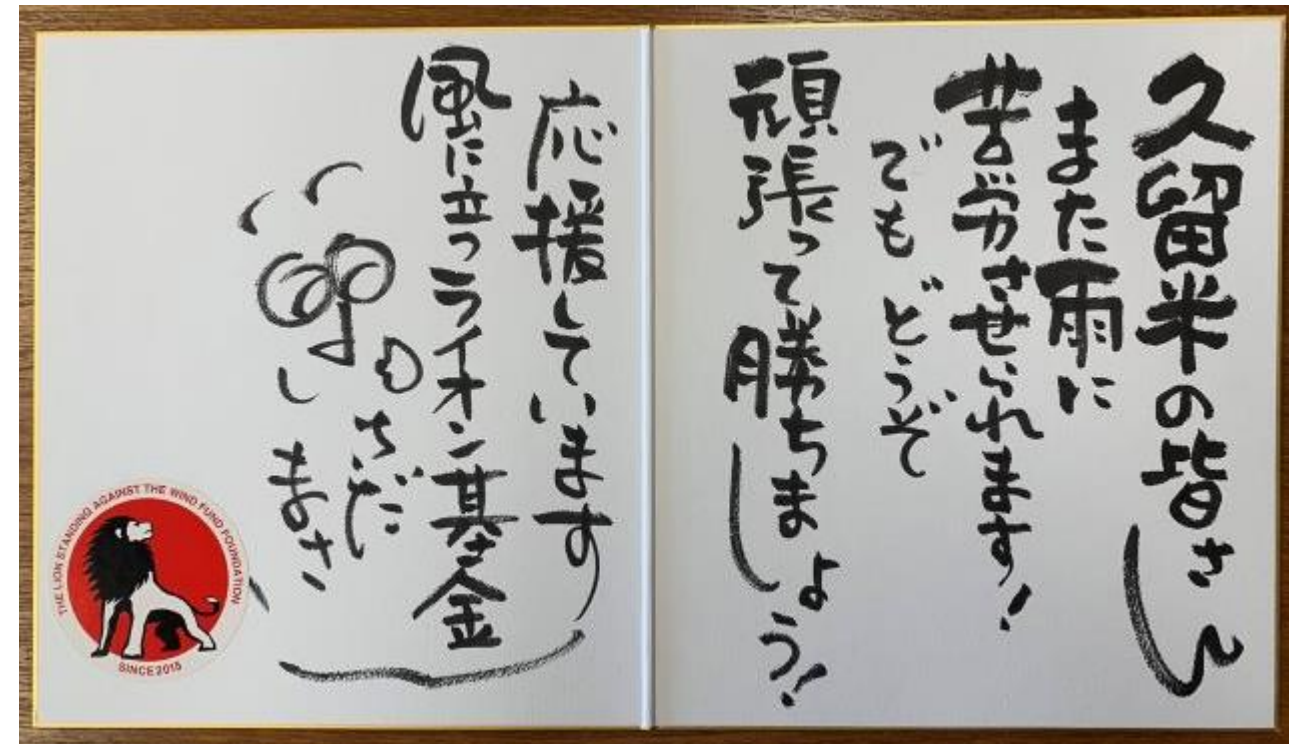 久留米の皆さん
また雨に
苦労させられます!
でもどうぞ
頑張って勝ちましょう!
応援しています
風に立つライオン基金
さだ
まさし
THE LION STANDING AGAINST THE WIND FUND FOUNDATION
SINCE 2015